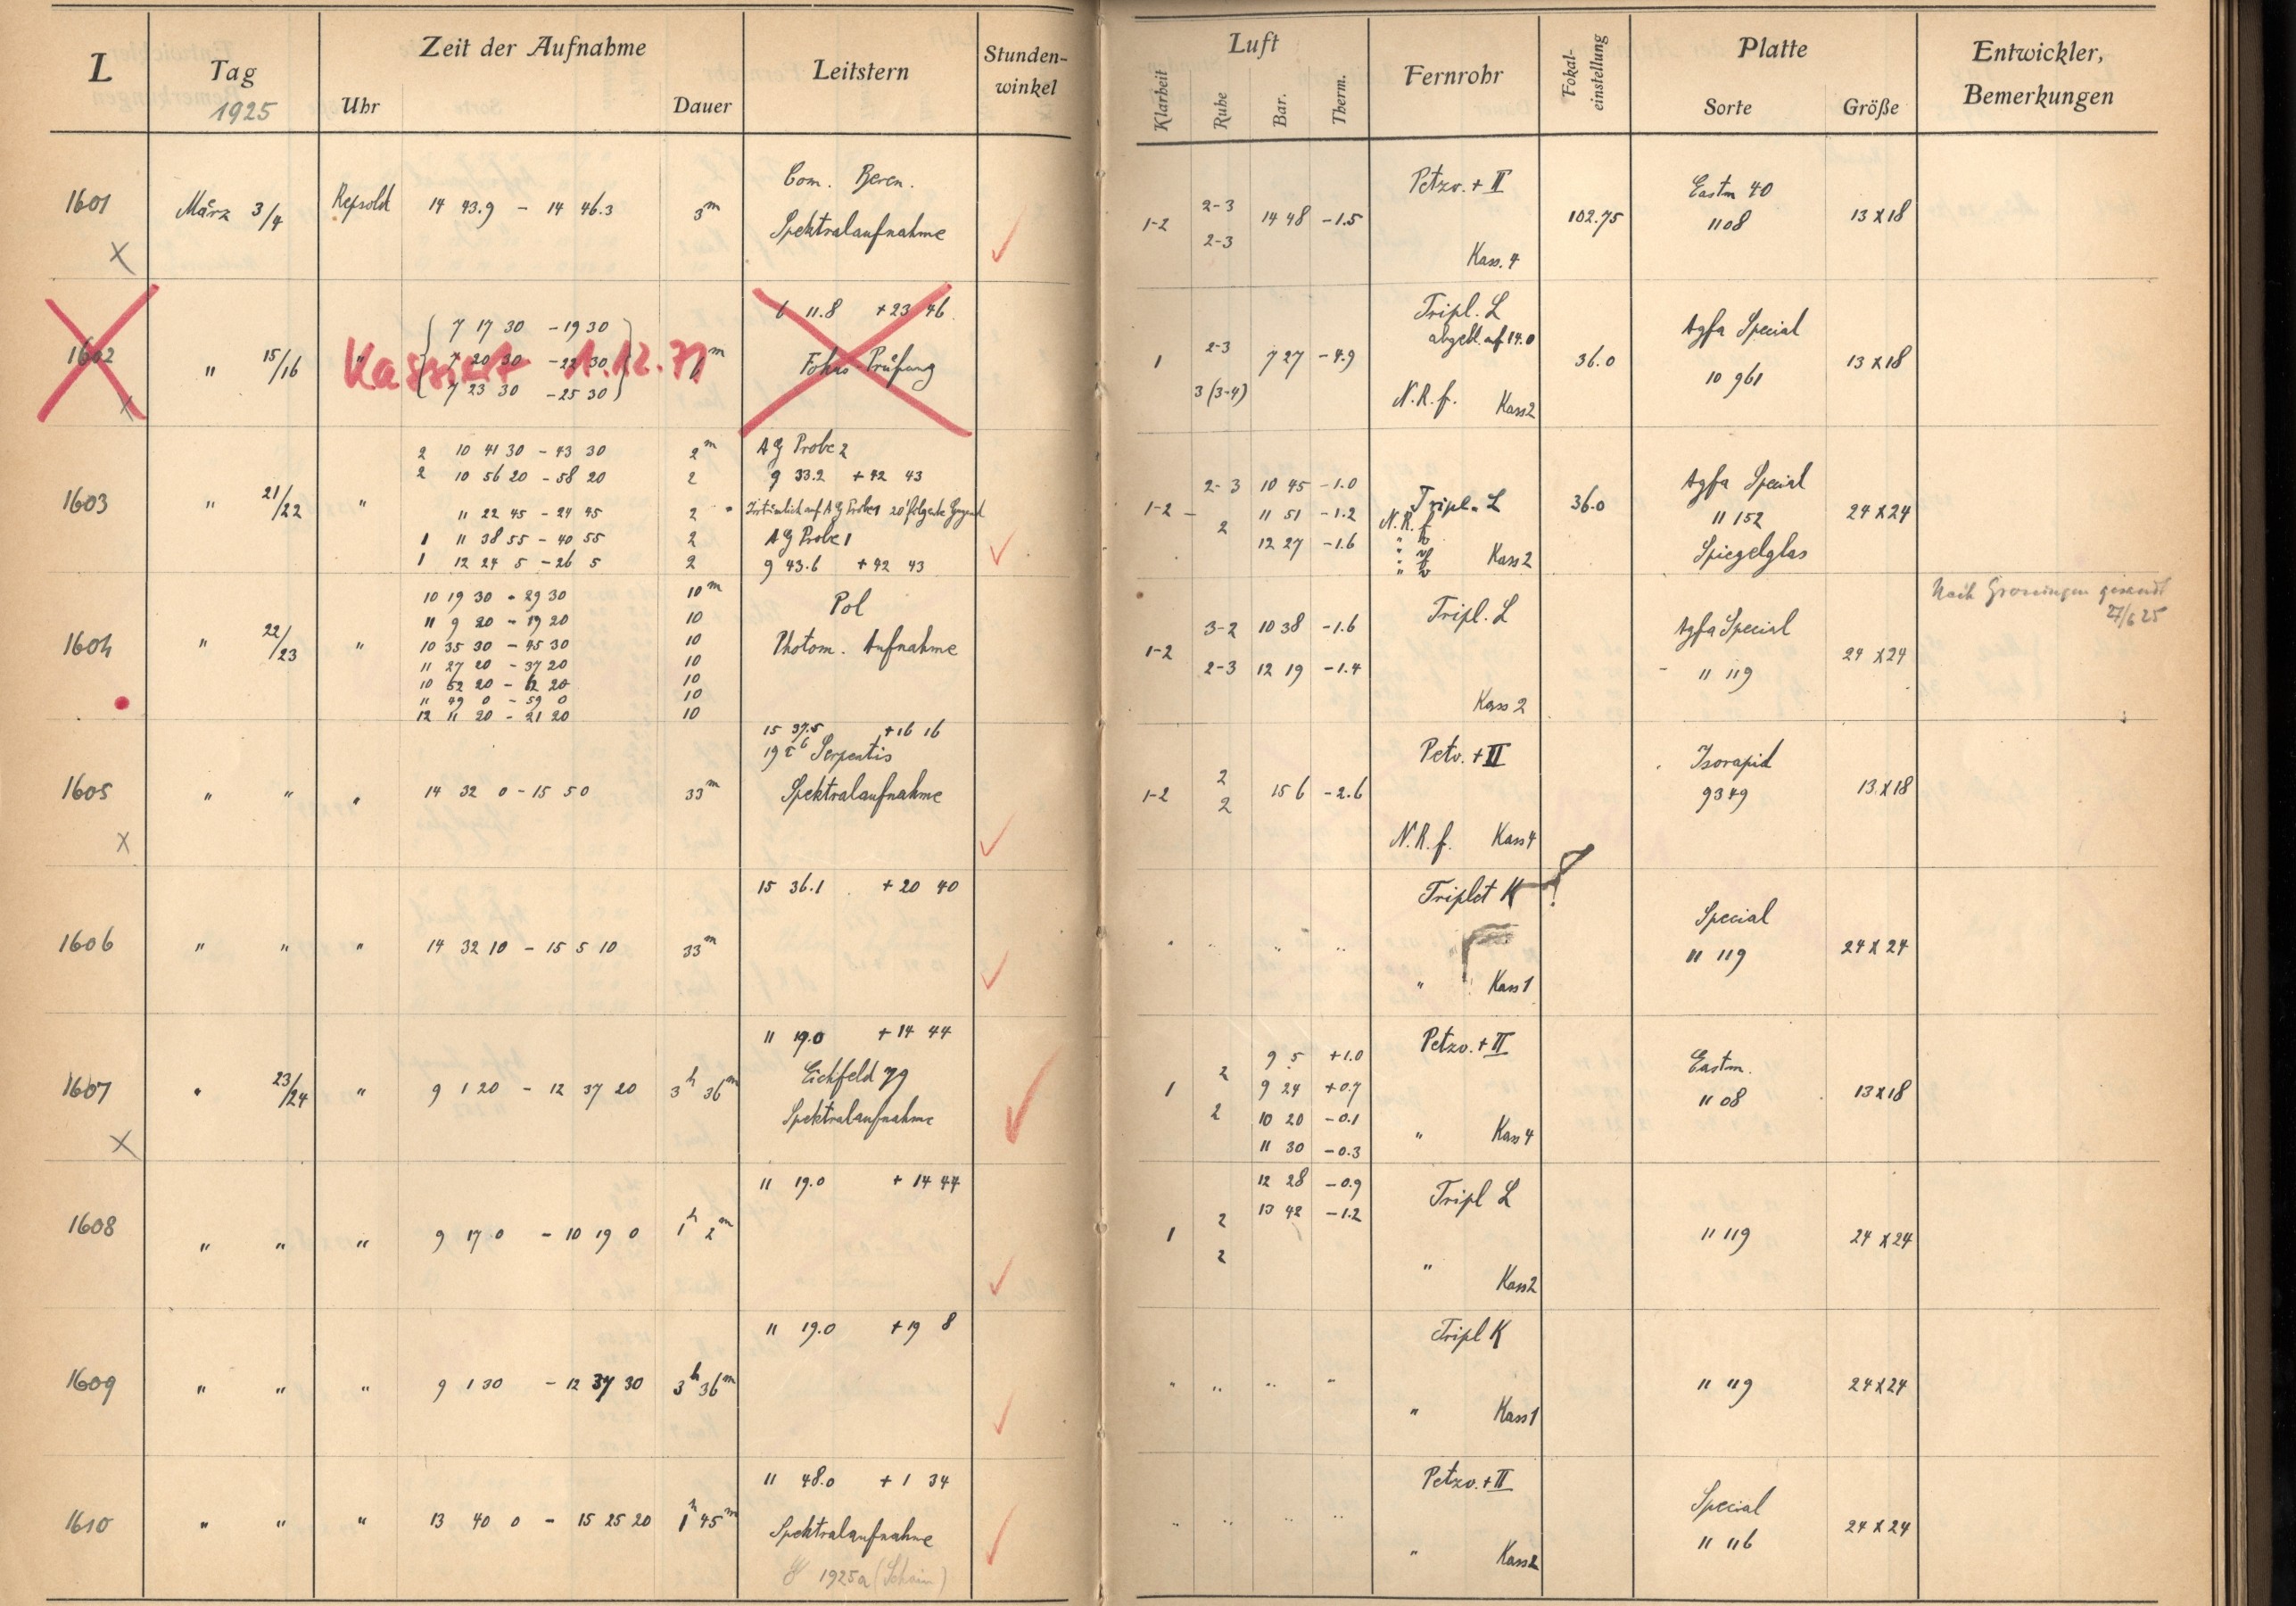 L Tag 1925 Zeit der Aufnahme Uhr Dauer Leitstern Stunden-winkel Luft Klarheit Ruhe Bar. Therm. Fernrohr Fokal-einstellung Platte Sorte Größe Entwickler, Bemerkungen
1601 März 3/4 Repsold 14 43.9 - 14 46.3 3m Com. Beren.
Spektralaufnahme
x
1-2 2-3 2-3 14 48 -1.5 Petzv. + II Kass. 4 102.75 Eastm 40
1108 13x18
1602 " 15/16 " 7 17 30 - 19 30
7 20 30 - 22 30
7 23 30 - 25 30
Kassiert 1.12.71
11.8 +23 46
Fokus-Prüfung
x
1 2-3 3(3-4) 7 27 -4.9 Tripl. L
abgebl. auf 14.0
N.R.f. Kass2 36.0 Agfa Special
10 961 13x18
1603 " 21/22 "
2 10 41 30 - 43 30 2m AG Probe 2
2 10 56 20 - 58 20 2 9 33.2 +42 43
11 22 45 - 24 45 2 Irrtümlich auf AG Probe 1 20' folgende Gegend
1 11 38 55 - 40 55 2 AG Probe 1
1 12 24 5 - 26 5 2 9 43.6 +42 43
1-2 - 2-3 2 10 45 -1.0
11 51 -1.2
12 27 -1.6
Tripl. L
N.R. f
Kass2 36.0 Agfa Special
11 152
Spiegelglas 24x24
1604 " 22/23 "
10 19 30 - 29 30 10m
11 9 20 - 19 20 10
10 35 30 - 45 30 10
11 27 20 - 37 20 10
10 52 20 - 62 20 10
11 49 0 - 59 0 10
12 11 20 - 21 20 10
Pol
Photom. Aufnahme
1-2 3-2 10 38 -1.6
2-3 12 19 -1.4
Tripl. L
Kass 2
Agfa Special
11 119 24x24
Nach Groningen gesandt
27/6 25
1605 " " " 14 32 0 - 15 5 0 33m 15 37.5 +16 16
19 τ6 Serpentis
Spektralaufnahme
x
1-2 2 2 15 6 -2.6 Petv. + II
N.R.f. Kass4
Isorapid
9349 13x18
1606 " " " 14 32 10 - 15 5 10 33m 15 36.1 +20 40
" " " " Triplet K
" Kass1
Special
11 119 24x24
1607 " 23/24 " 9 1 20 - 12 37 20 3h 36m 11 19.0 +14 44
Eichfeld 79
Spektralaufnahme
x
1 2 2 9 5 +1.0
9 24 +0.7
10 20 -0.1
11 30 -0.3
Petzv. + II
" Kass4
Eastm.
11 08 13x18
1608 " " " 9 17 0 - 10 19 0 1h 2m 11 19.0 +14 44
1 2 2 12 28 -0.9
13 42 -1.2
Tripl L
" Kass2
11 119 24x24
1609 " " " 9 1 30 - 12 37 30 3h 36m 11 19.0 +19 8
" " " " Tripl K
" Kass1
11 119 24x24
1610 " " " 13 40 0 - 15 25 20 1h 45m 11 48.0 +1 34
Spektralaufnahme
1925a (Schain)
" " " " Petzv. + II
" Kass2
Special
11 116 24x24